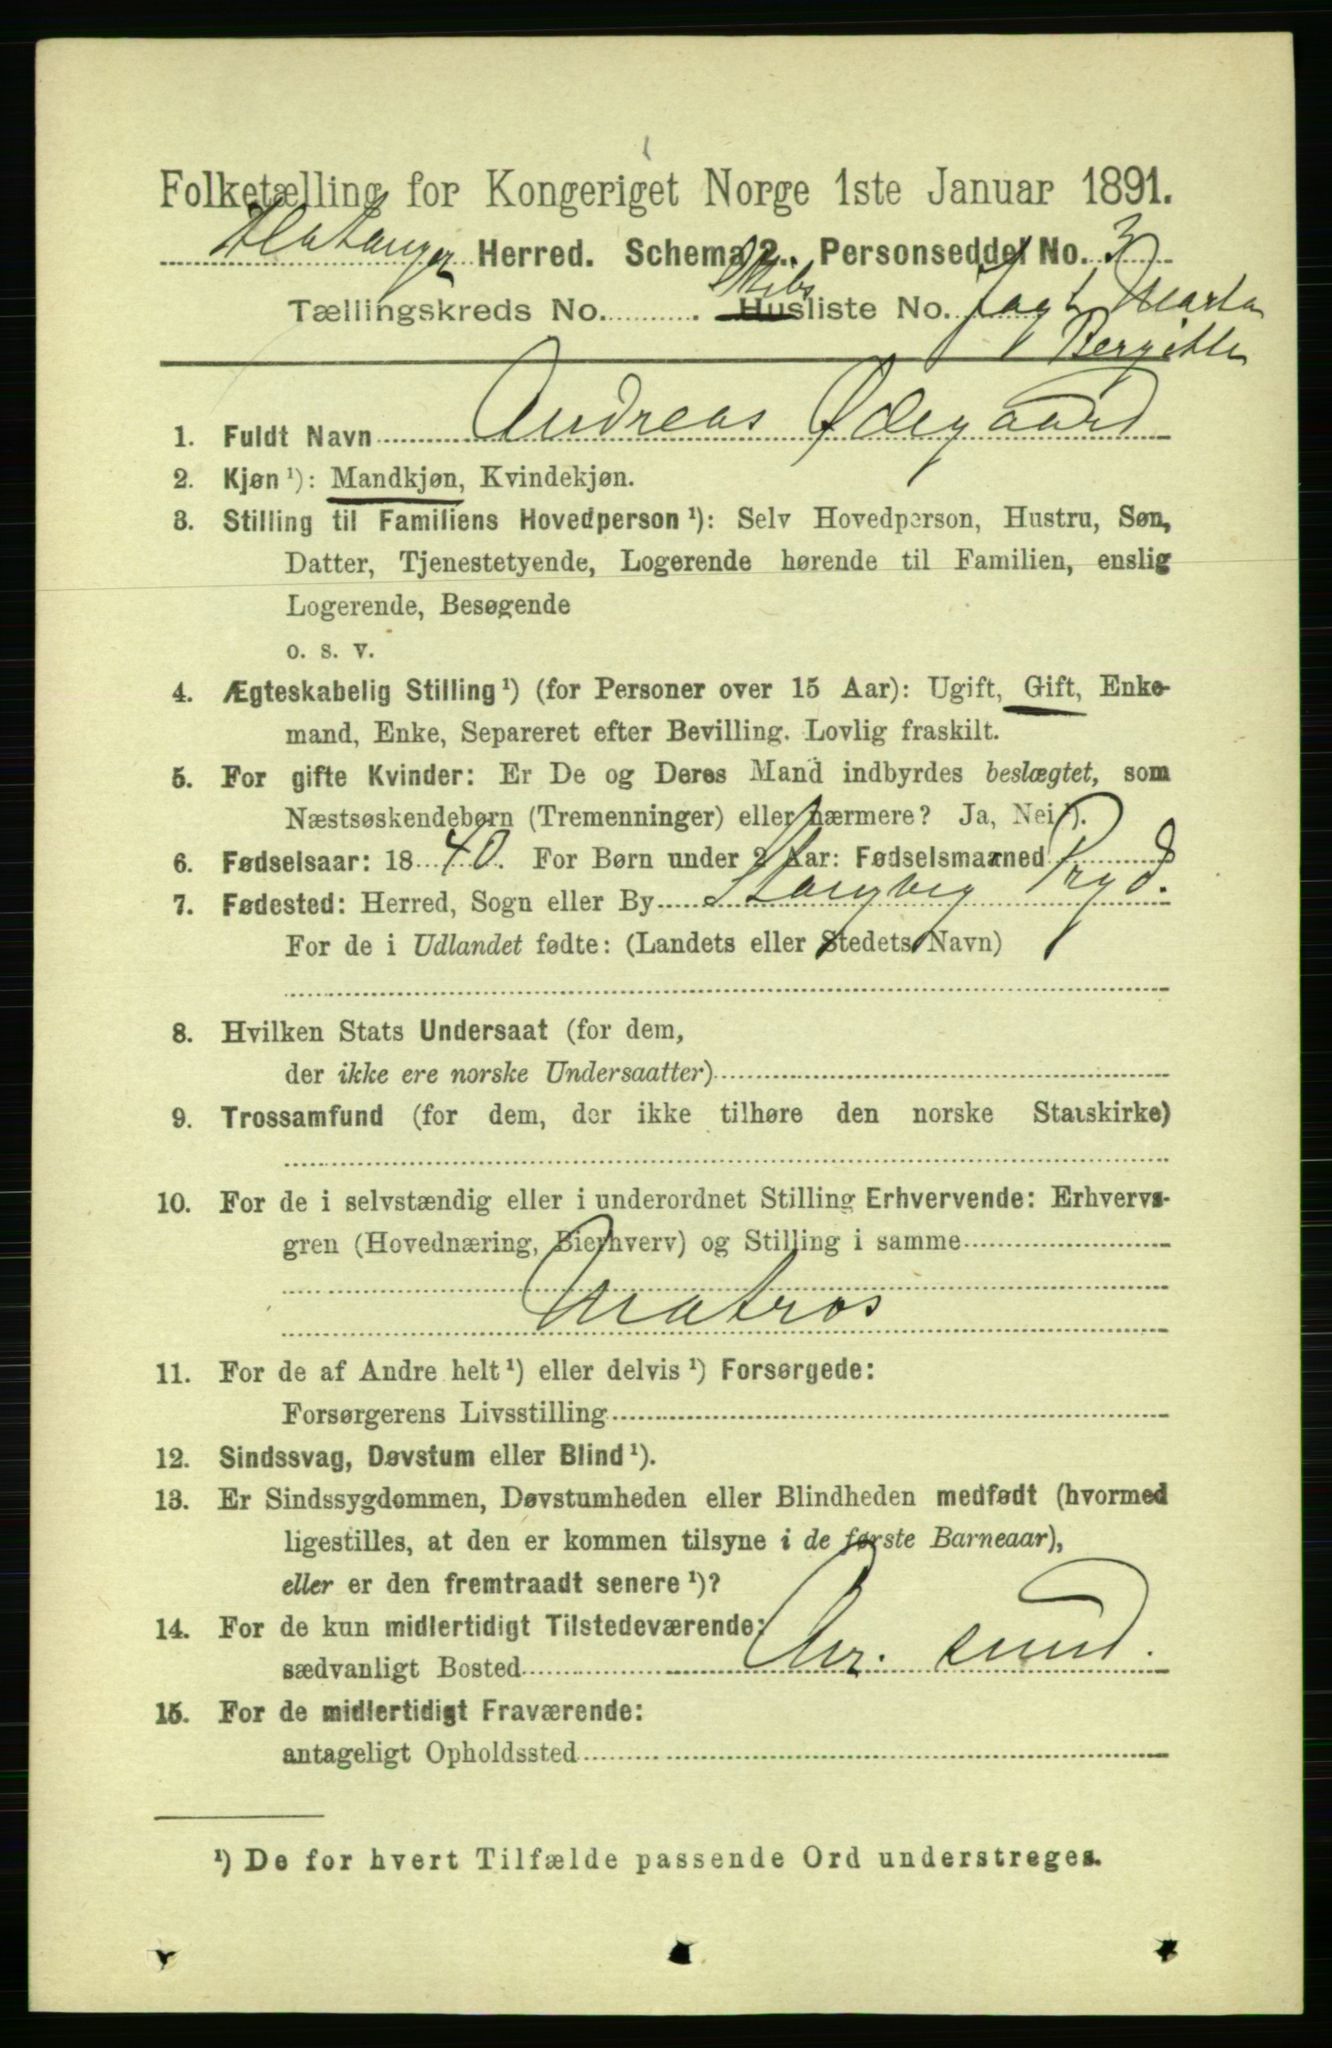 Folketælling for Kongeriget Norge 1ste Januar 1891.
Flatanger Herred. Schema 2. Personseddel No. 3
Tællingskreds No. Skibs Husliste No. Jagt Marta
Bergitte
1. Fuldt Navn Andreas Ødegaard
2. Kjøn ¹): Mandkjøn, Kvindekjøn.
3. Stilling til Familiens Hovedperson ¹): Selv Hovedperson, Hustru, Søn,
Datter, Tjenestetyende, Logerende hørende til Familien, enslig
Logerende, Besøgende
o. s. v.
4. Ægteskabelig Stilling ¹) (for Personer over 15 Aar): Ugift, Gift, Enke-
mand, Enke, Separeret efter Bevilling. Lovlig fraskilt.
5. For gifte Kvinder: Er De og Deres Mand indbyrdes beslægtet, som
Næstsøskendebørn (Tremenninger) eller nærmere? Ja, Nei ¹).
6. Fødselsaar: 1840. For Børn under 2 Aar: Fødselsmaaned
7. Fødested: Herred, Sogn eller By
For de i Udlandet fødte: (Landets eller Stedets Navn)
8. Hvilken Stats Undersaat (for dem,
der ikke ere norske Undersaatter)
9. Trossamfund (for dem, der ikke tilhøre den norske Statskirke)
10. For de i selvstændig eller i underordnet Stilling Erhvervende: Erhvervs-
gren (Hovednæring, Bierhverv) og Stilling i samme
Matros
11. For de af Andre helt ¹) eller delvis ¹) Forsørgede:
Forsørgerens Livsstilling
12. Sindssvag, Døvstum eller Blind ¹).
13. Er Sindssygdommen, Døvstumheden eller Blindheden medfødt (hvormed
ligestilles, at den er kommen tilsyne i de første Barneaar),
eller er den fremtraadt senere ¹)?
14. For de kun midlertidigt Tilstedeværende:
sædvanligt Bosted Chr. sund.
15. For de midlertidigt Fraværende:
antageligt Opholdssted
¹) De for hvert Tilfælde passende Ord understreges.